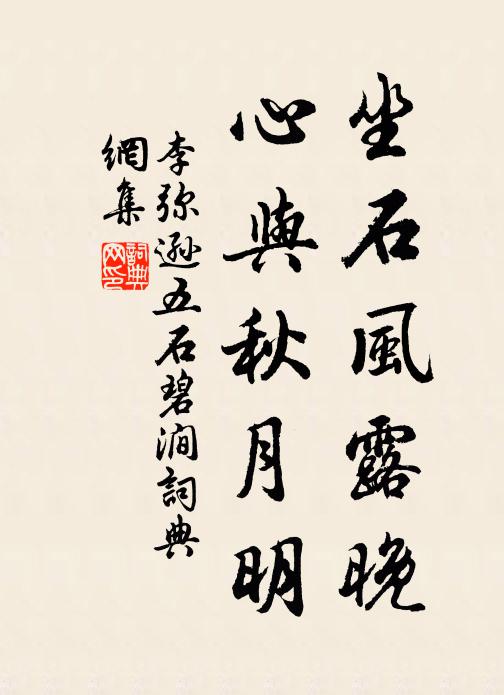 坐石風露晚
心與秋月明
李弥遜五石碧澗詞典
網集
詞典網印